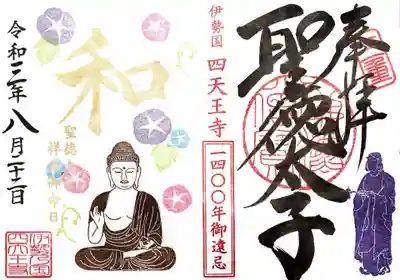 奉拝
聖徳太子
伊勢国 四天王寺
一四〇〇年御遠忌
和
聖徳
御命日
令和三年八月二十二日
伊勢国
四天王寺